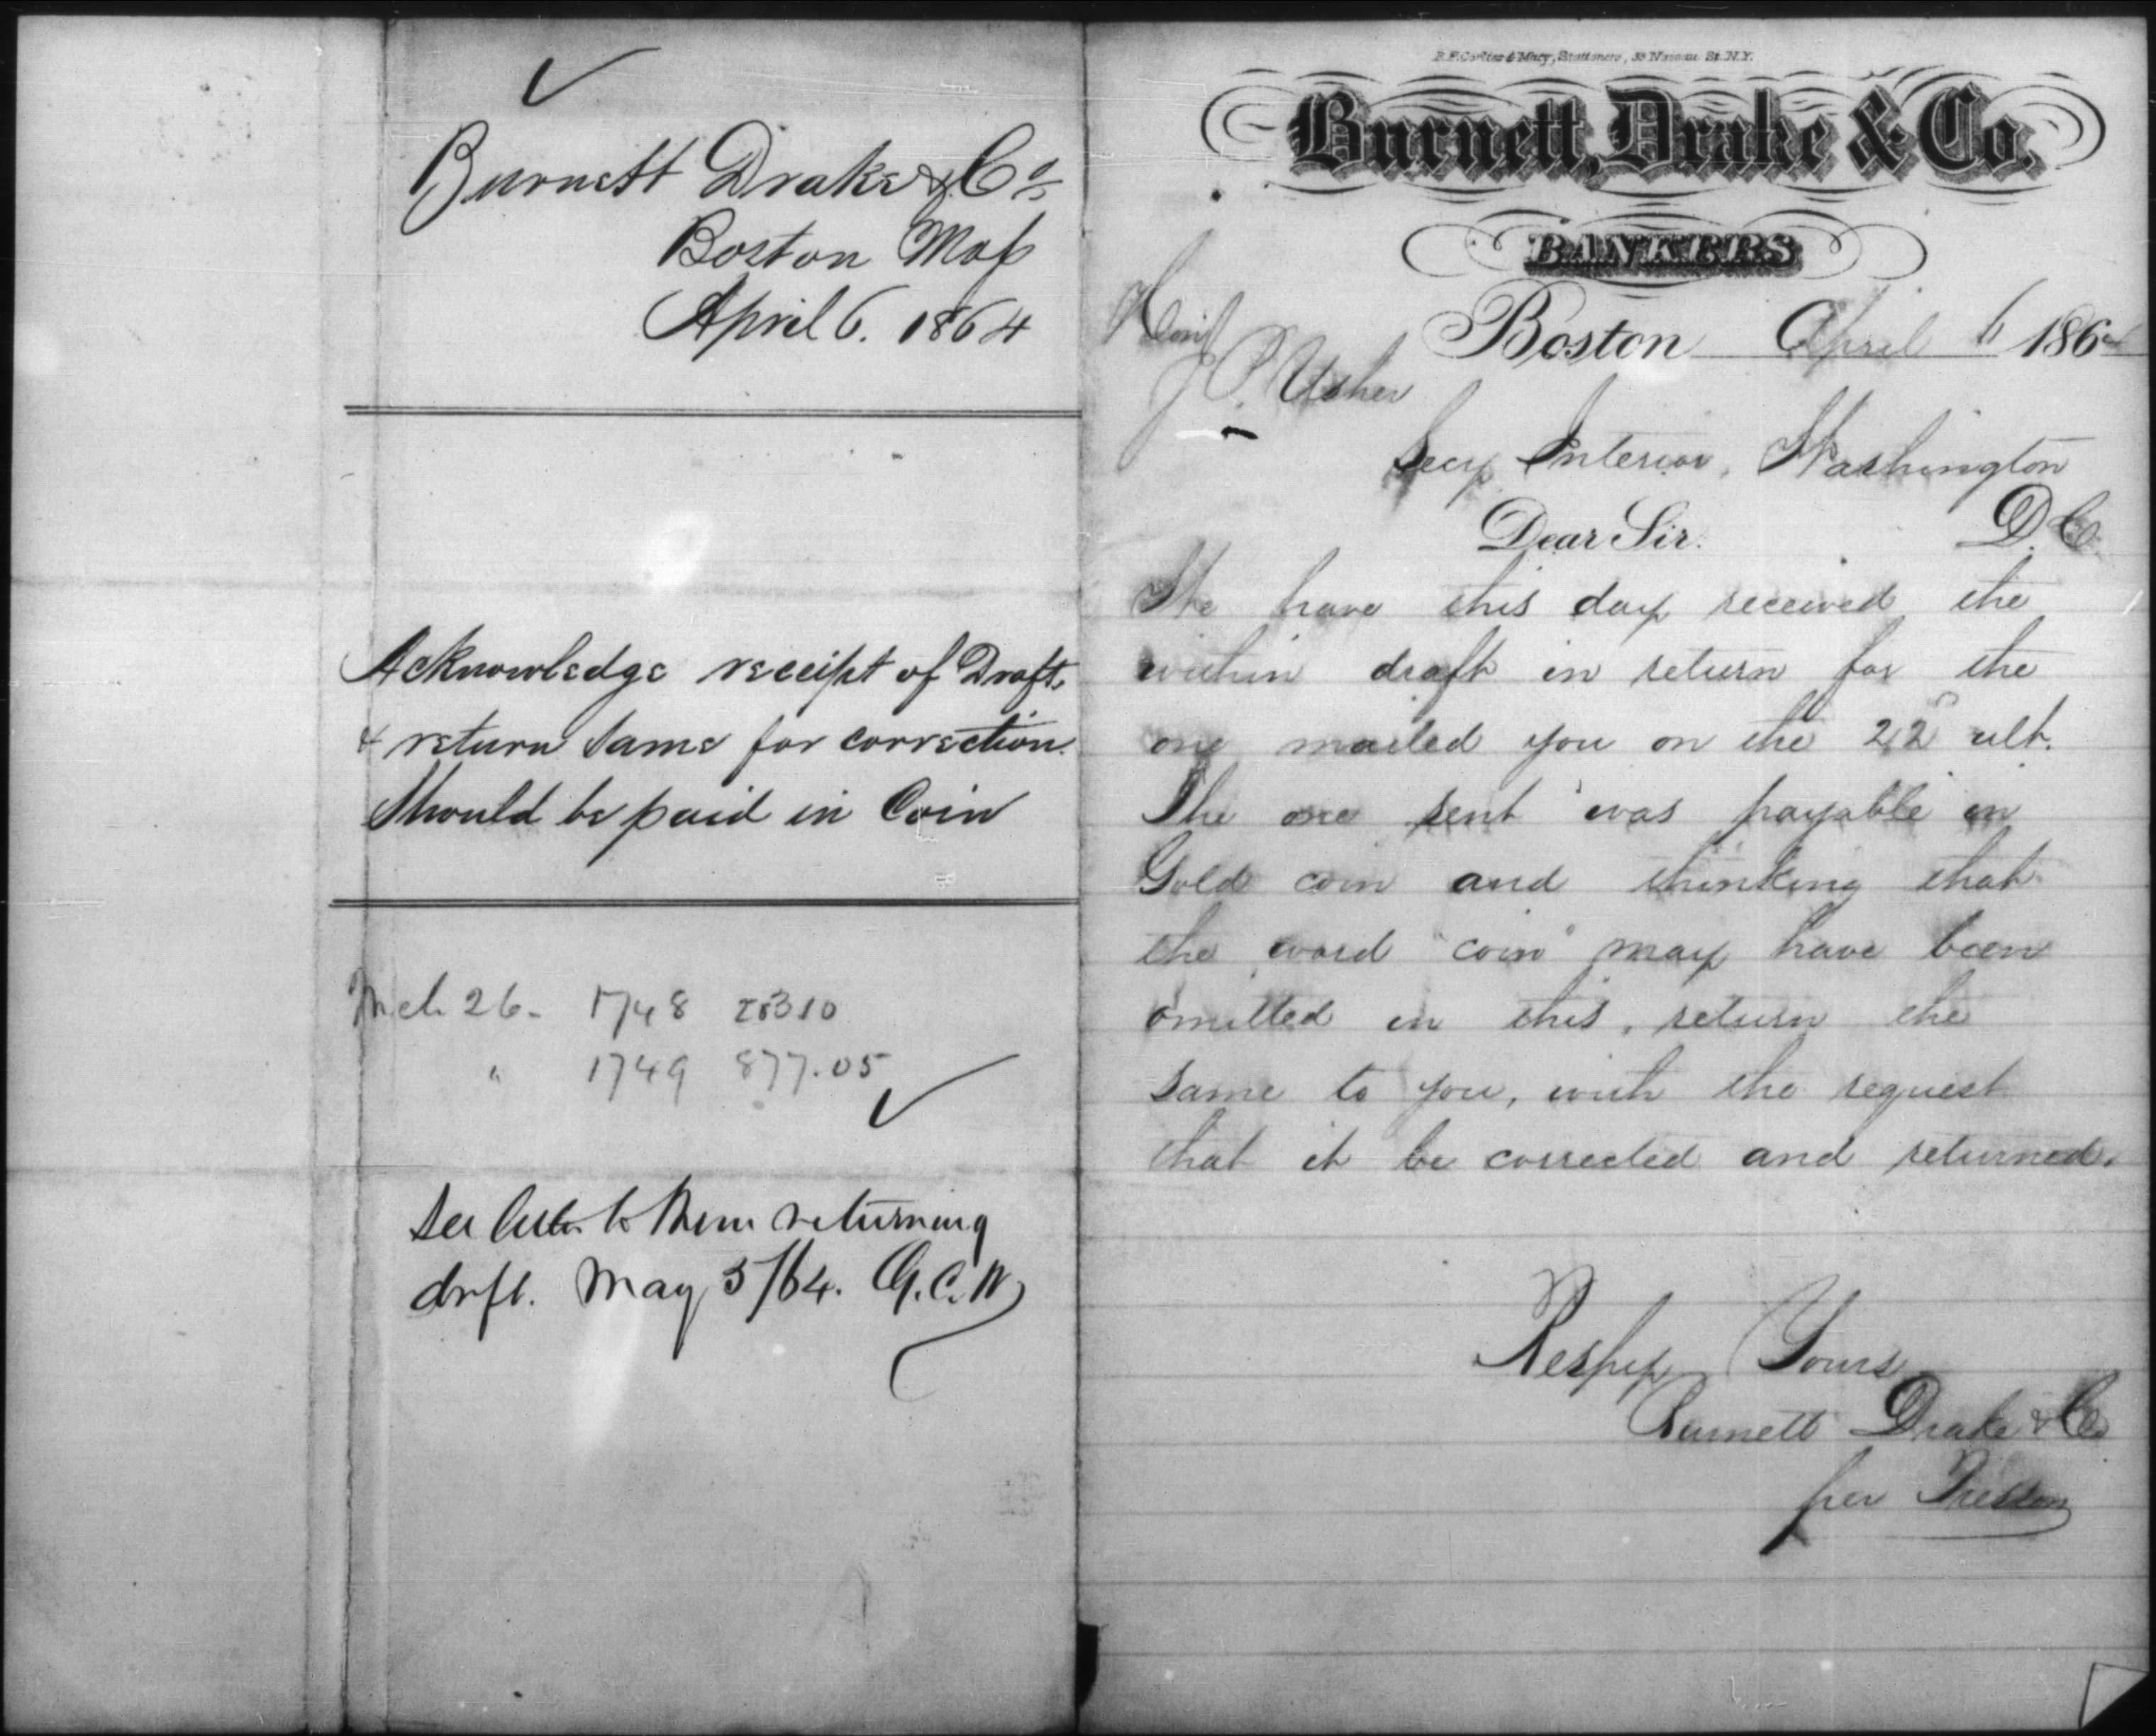 Burnett Drake & Co
Boston Mass
April 6. 1864
Acknowledge receipt of Draft,
& return same for correction.
Should be paid in Coin
Mch 26- 1748
" 1749 877.05
See letter to them returning
drft. May 5/64. G.C.W
Stationers, Nassau St. N.Y.
Burnett, Drake & Co.
BANKERS
Boston April 6 1864
Honl
J P. Usher
Secy Interior, Washington
Dear Sir. D.C.
We have this day received the
within draft in return for the
one mailed you on the 22d ult.
The one sent was payable in
Gold coin and thinking that
the word "coin" may have been
omitted in this, return the
same to you, with the request
that it be corrected and returned.
Respy Yours
Burnett Drake & Co
per